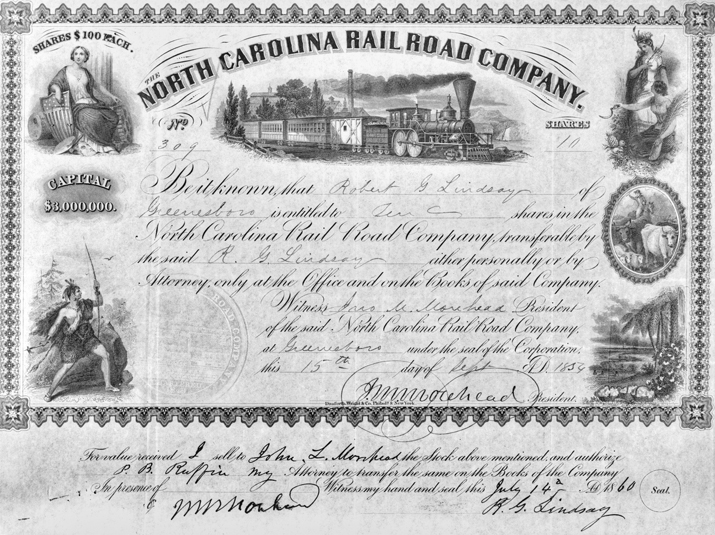 SHARES $100 EACH.
THE NORTH CAROLINA RAIL ROAD COMPANY.
No. 309
SHARES 10
CAPITAL
$3,000,000.
Be it known, that Robert G Lindsay of
Greensboro is entitled to Ten shares in the
North Carolina Rail Road Company, transferable by
the said R. G. Lindsay either personally or by
Attorney, only at the Office and on the Books of said Company.
Witness Jno M. Morehead President
of the said North Carolina Rail Road Company,
at Greensboro under the seal of the Corporation,
this 15th day of Sept A.D. 1854
J M Morehead President.
For value received I sell to John L. Morehead the Stock above mentioned, and authorize
P. B. Ruffin my Attorney to transfer the same on the Books of the Company
In presence of Witness my hand and seal this July 14th A.D. 1860 Seal.
J M Morehead R. G. Lindsay